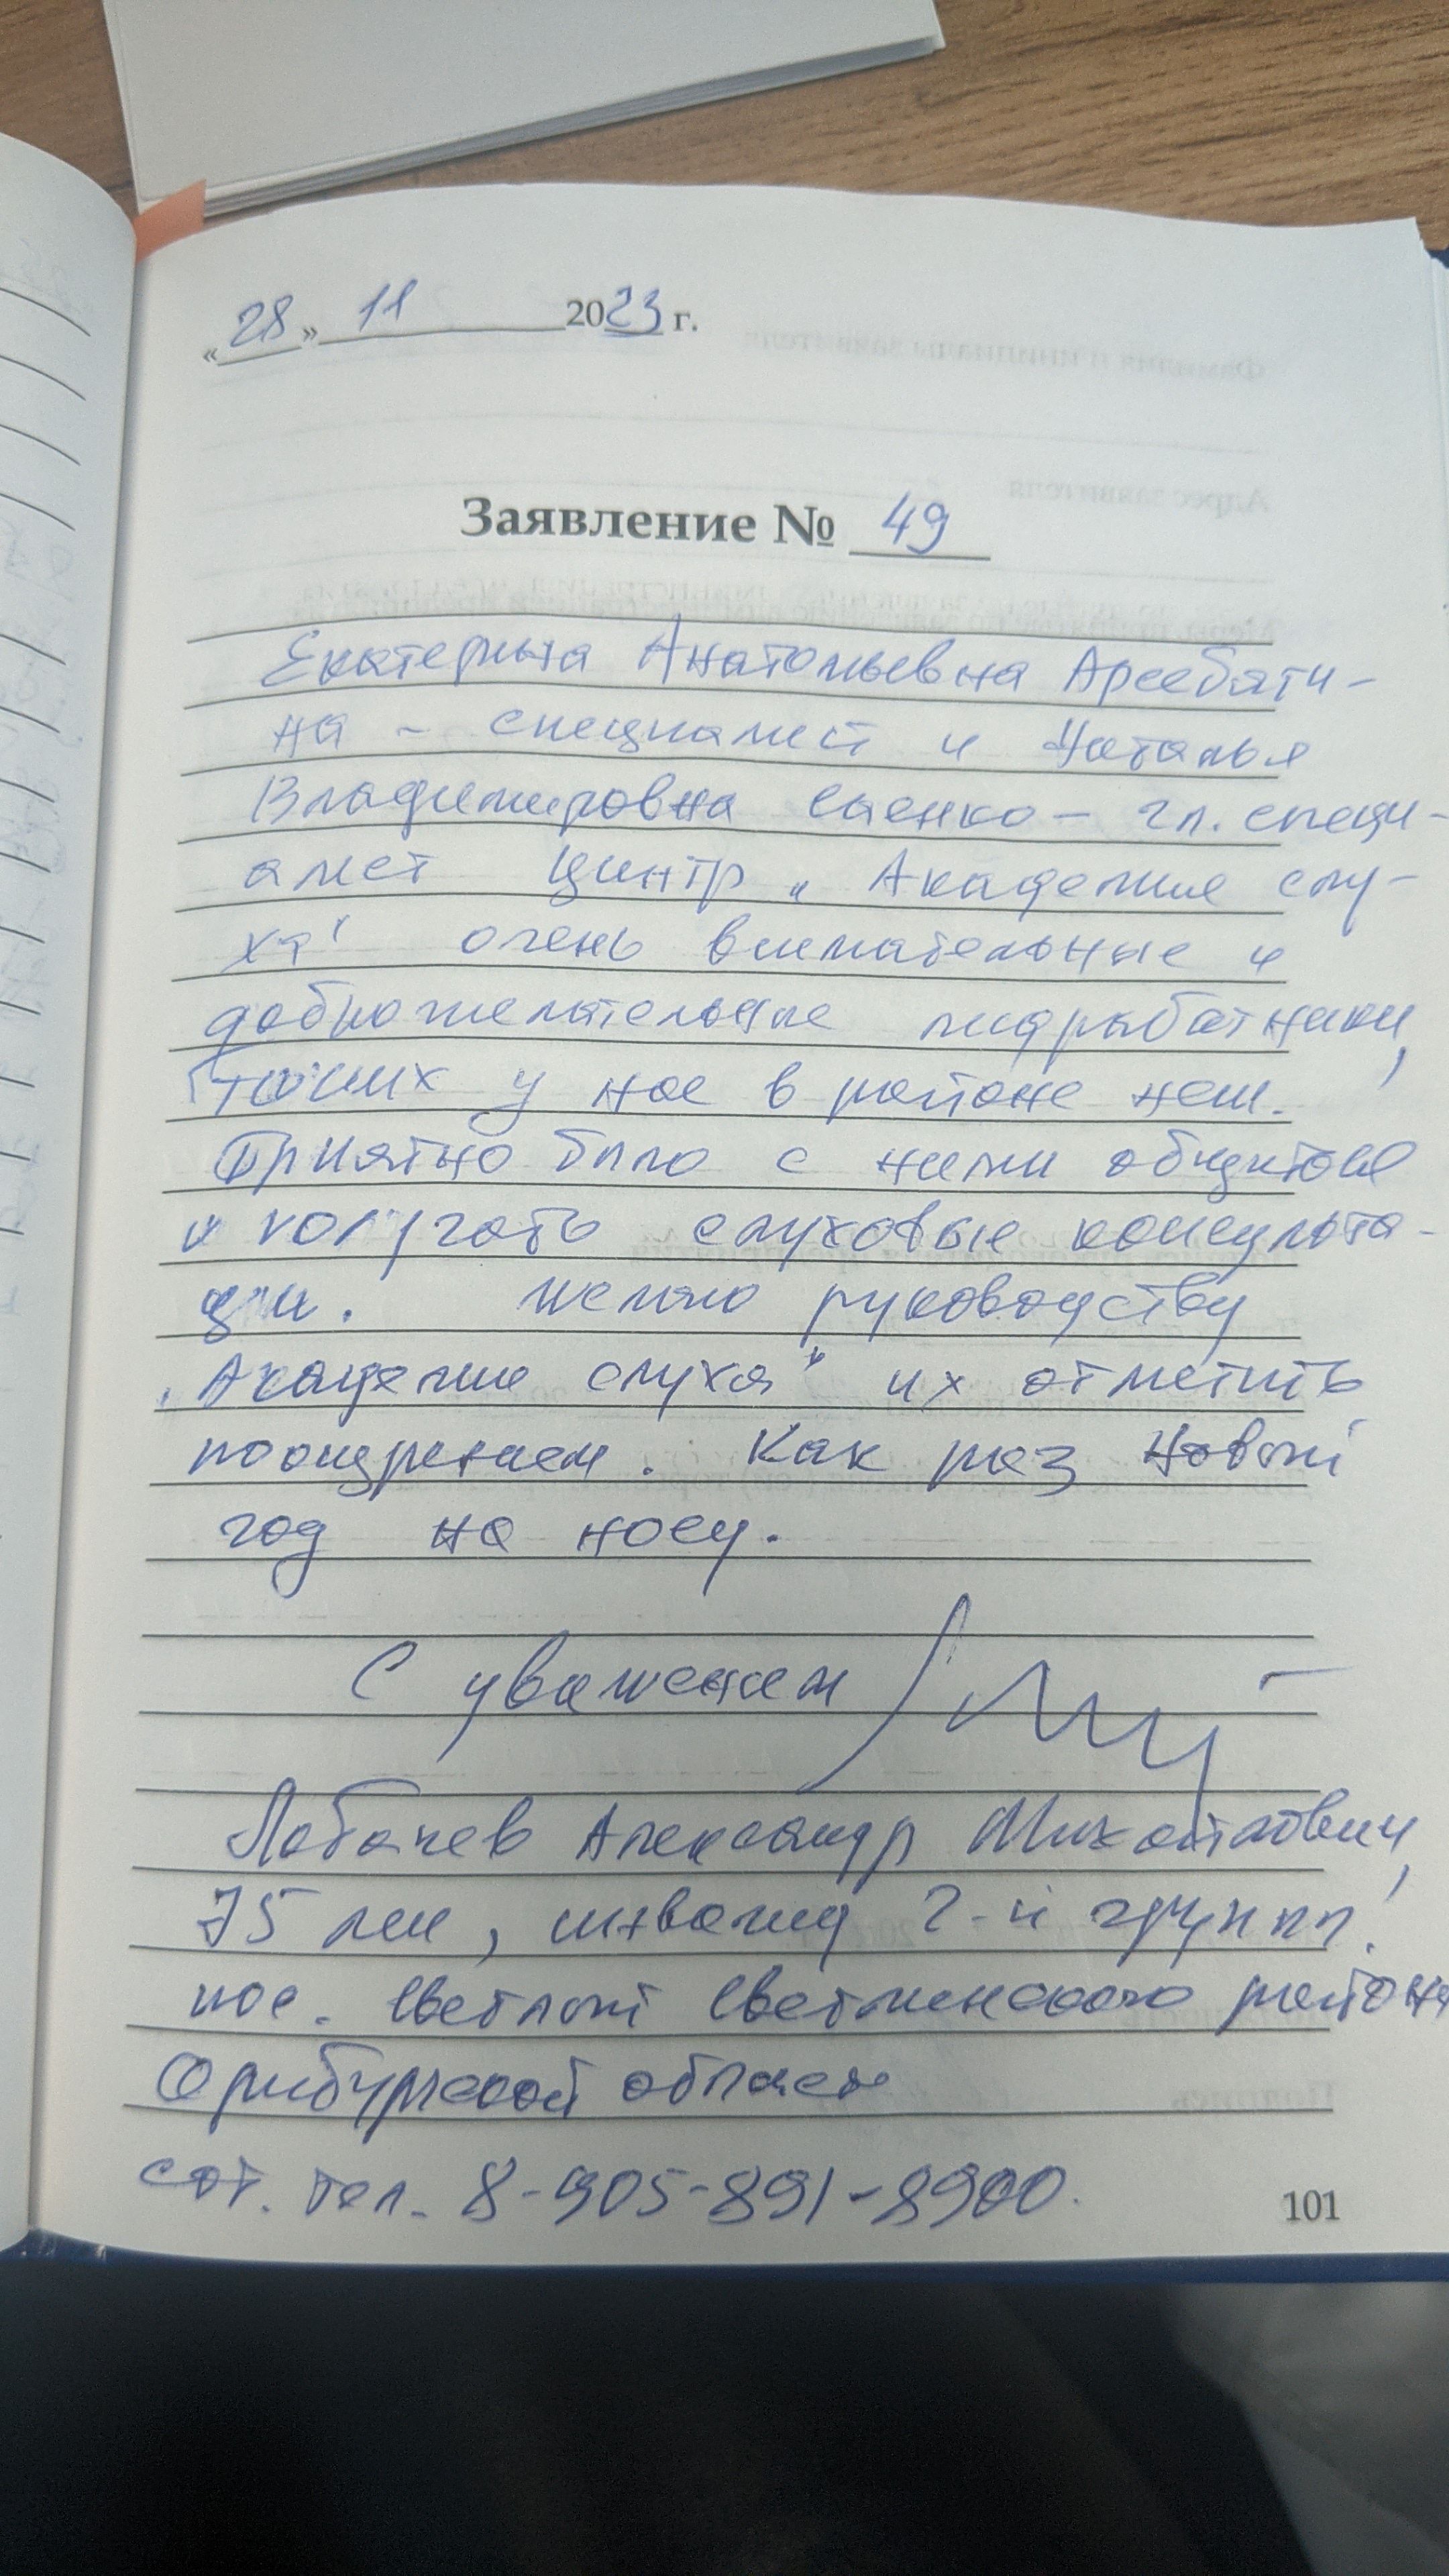 «28» 11 2023 г.
Заявление № 49
Екатерина Анатольевна
на - специалист и Наталья
Владимировна Саенко - гл. специ-
алист Центр „Академия слу-
ха" очень внимательные и
доброжелательные медработники,
таких у нас в районе нет.
Приятно было с ними общаться
и получать слуховые консульта-
ции. Желаю руководству
„Академия слуха" их отметить
поощрением. Как раз Новый
год на носу.
С уважением
Лобачев Александр Михайлович,
75 лет, инвалид 2-й групп.
пос. Светлый Светлинского района
Оренбургской области
сот. тел. 8-905-891-8900.
101